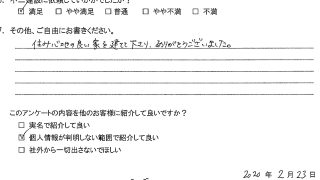 ☑ 満足 ☐ やや満足 ☐ 普通 ☐ やや不満 ☐ 不満
7. その他、ご自由にお書きください。
住み心地の良い家を建てて下さり、ありがとうございました。
このアンケートの内容を他のお客様に紹介して良いですか?
☐ 実名で紹介して良い
☑ 個人情報が判明しない範囲で紹介して良い
☐ 社外から一切出さないでほしい
2020 年 2 月 23 日